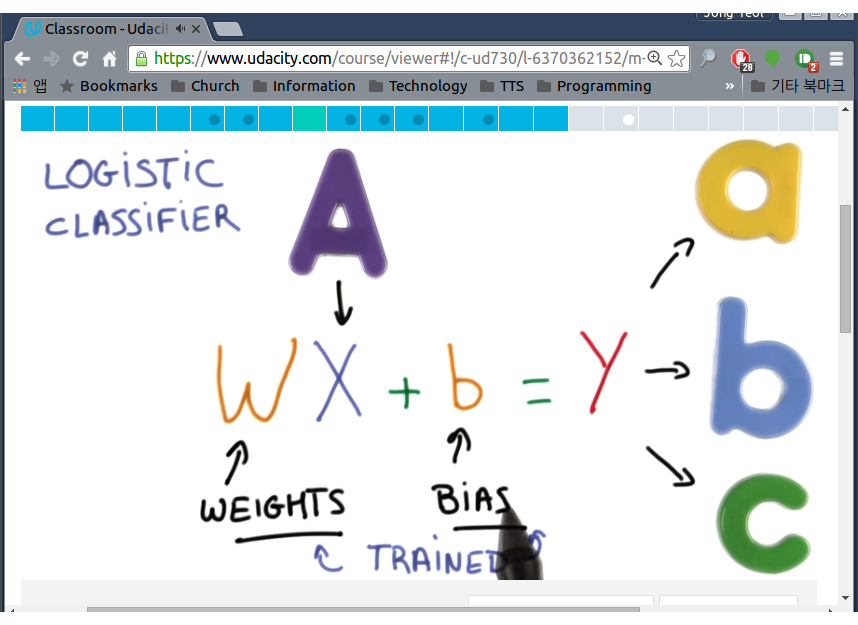 Jong Yeol
Classroom - Udacit
https://www.udacity.com/course/viewer#!/c-ud730/l-6370362152/m-
28
2
앱 Bookmarks Church Information Technology TTS Programming » 기타 북마크
LOGISTIC
CLASSIFIER
A
a
b
c
WX + b = Y
WEIGHTS BIAS
TRAINED